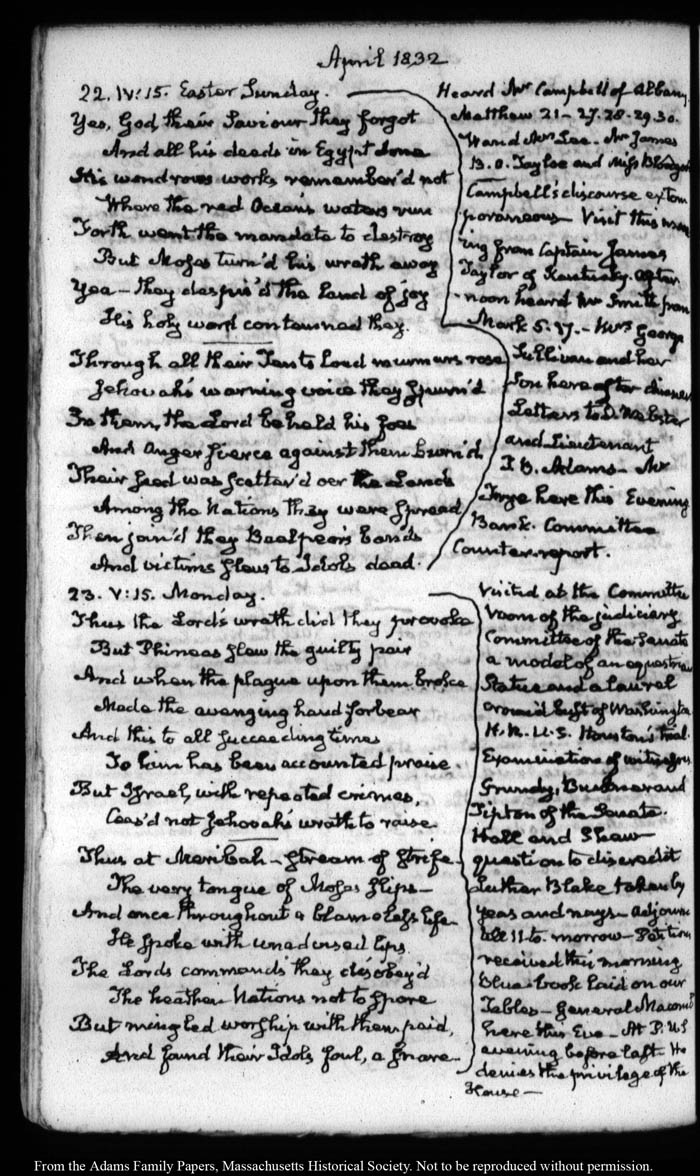 April 1832
22. IV:15. Easter Sunday.
Yes, God their Saviour they forgot
And all his deeds in Egypt done
His wondrous works remember'd not
Where the red Ocean's waters run
Forth went the mandate to destroy
But Moses turn'd his wrath away
Yea – they despis'd the Land of joy
His holy word contemned they.
Through all their Tents loud murmurs rose
Jehovah's warning voice they spurn'd
In them, the Lord beheld his foes
And Anger fierce against them burn'd
Their seed was scatter'd oer the Lands
Among the Nations they were spread
Then join'd they Baalpeor's bands
And victims slew to Idols dead.
Heard Mr Campbell of Albany
Matthew 21 – 27. 28. 29. 30.
Ward Mr Lee – Mr James
B. O. Tayloe and Miss
Campbell's discourse extem
poraneous – Visit this morn
ing from Captain James
Taylor of Kentucky. After
noon heard Mr Smith from
Mark 5. 17. – Mrs George
Sullivan and her
Son here after dinner
Letters to D. Webster
and Lieutenant
T. B. Adams – Mr
Frye here this Evening
Bank. Committee
Counter-report.
23. V:15. Monday.
Thus the Lord's wrath did they provoke
But Phineas slew the guilty pair
And when the plague upon them broke
Made the avenging hand forbear
And this to all succeeding times
To him has been accounted praise.
But Israel, with repeated crimes,
Ceas'd not Jehovah's wrath to raise
Thus at Meribah – stream of strife –
The very tongue of Moses slips –
And once throughout a blameless life
He spoke with unadvised lips
The Lords commands they disobey'd
The heathen Nations not to spare
But mingled worship with them paid,
And found their Idols foul, a snare –
Visited at the Committee
room of the judiciary
Committee of the Senate
a model of an equestrian
Statue and a laurel
crown'd bust of Washington
H.R. U.S. Houston's trial.
Examination of witnesses
Grundy, Buckner and
Tipton of the Senate.
Hall and Shaw
question to discredit
Luther Blake taken by
yeas and nays – adjourn
till 11 to-morrow – Petition
received this morning
blue-book laid on our
Tables – General Macomb
here this Eve – At P. U.S
evening before last. He
denies the privilege of the
House –
From the Adams Family Papers, Massachusetts Historical Society. Not to be reproduced without permission.